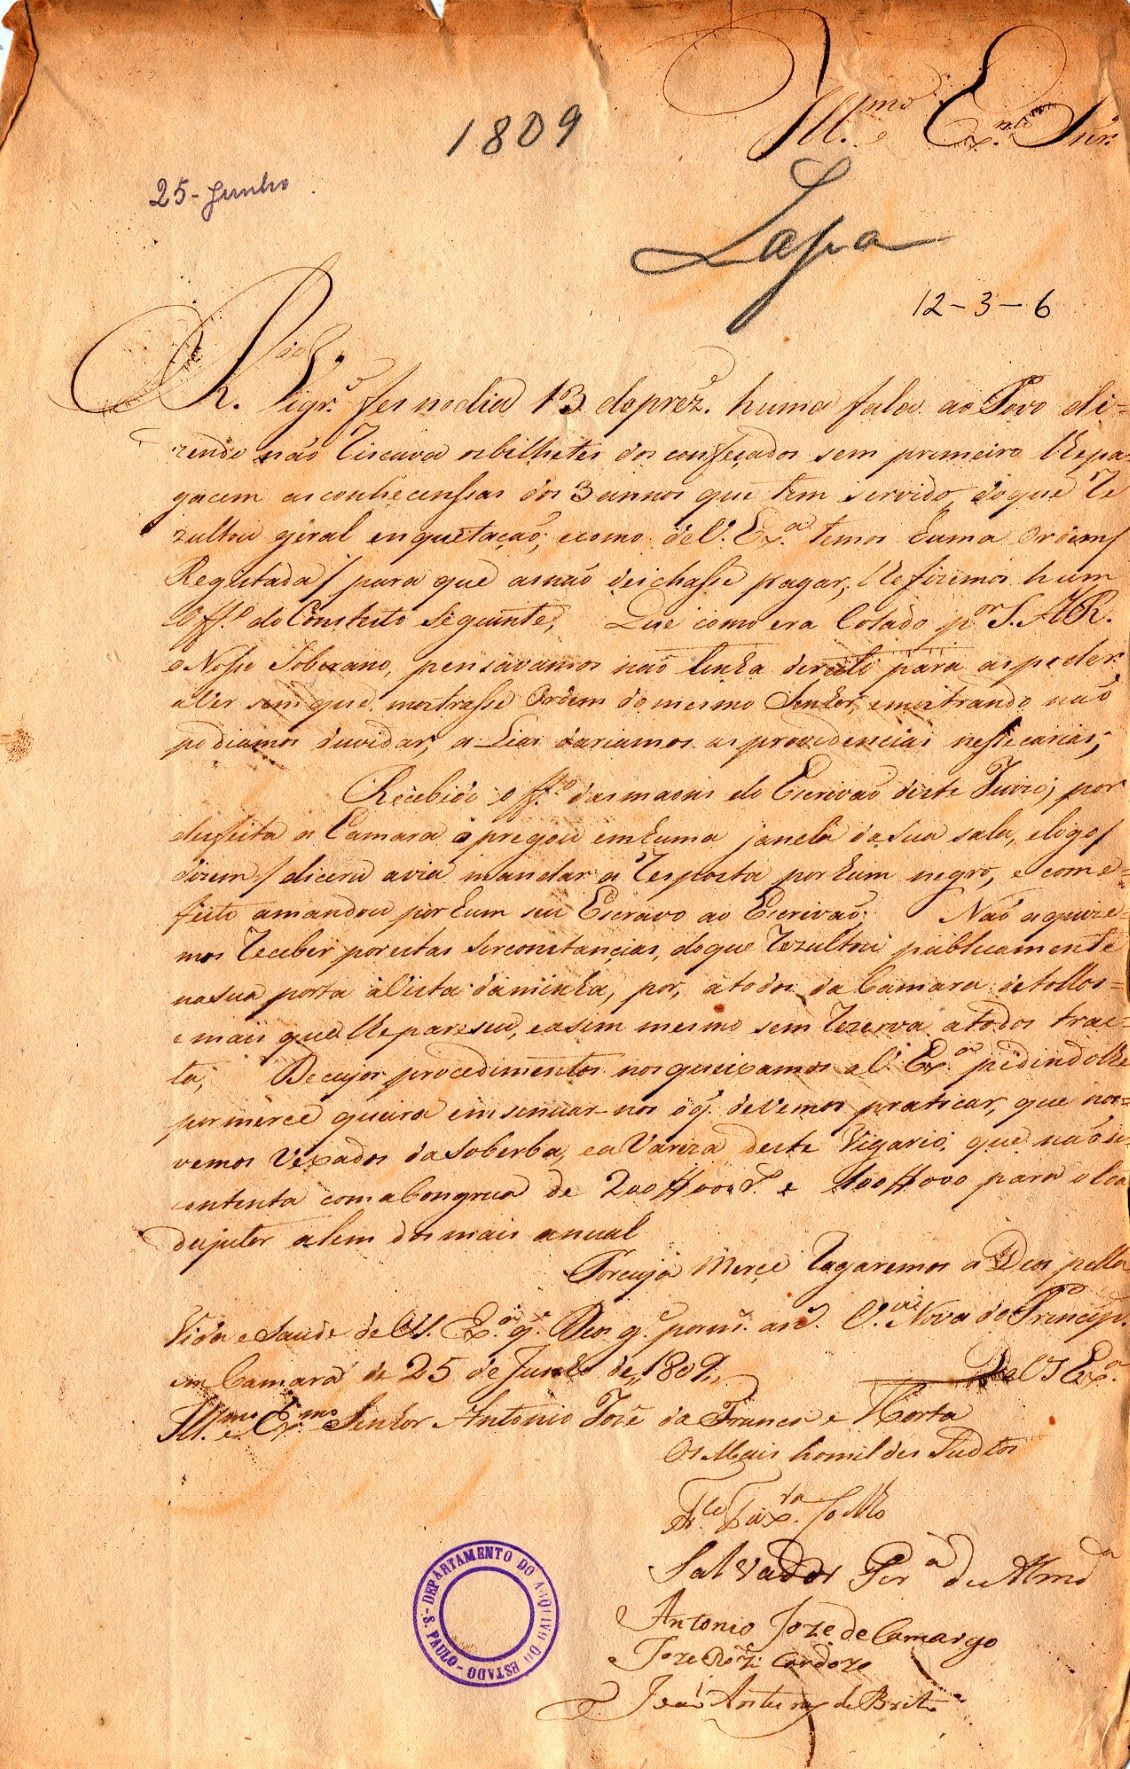 Ill.mo e Ex.mo Snr.
1809
25-Junho
Lapa
12-3-6
R. Vigr.o fes no dia 13 do prez.e huma fala ao Povo di=
zendo não riscava os bilhetes dos confeçados sem primeiro lhe pa=
gacem as conhecenssas dos 3 annos que tem servido, do que re
zultou geral inquetação; e como de V. Ex.a temos huma Ordem/
Regestada/ para que as não deichasse pagar, lhe fizemos hum
Off.o do Contheuto seguinte; Que como era Colado p.or S.A.R.
o Nosso Soberano, pensavamos não tinha direito para as poder
aver sem que mostrasse Ordem do mesmo Senhor, e mostrando não
podiamos duvidar, a Leas dariamos as providencias nessecarias;
Recebido o off.o das maons do Escrivão deste Juizo; por
desfeita a Camara o pregou em huma janela da sua sala, e logo/
dizem/ dicera avia mandar a resposta por hum negro, e com e=
feito a mandou por hum seu Escravo ao Escrivão; Não a quize=
mos receber por estas sirconstancias, do que rezultou publicamente
na sua porta à vista da minha, por, a todos da Camara de tollos=
e mais que lhe pareseu, e asim mesmo sem rezerva a todos trac=
ta; De cujos procedimentos nos queixamos a V. Ex.a pidindolhe
por merce queira emsenuar-nos o q. devemos praticar, que nos=
vemos vexados da soberba, e a Vareza deste Vigario; que não se
contenta com a Congrua de 200//000 r.s e 100//000 para o Coa
dejutor alem dos mais anual
Por cuja Merçe rogaremos a Deos pella
Vida e Saude de V. Ex.a q.e Deos g.e por m.s an.s V.a Nova do Princip.e
em Camara de 25 de Junho de 1809,,
De V Ex.a
Ill.mo e Ex.mo Senhor Antonio José da Franca e Horta
Os Mais homildes Subtos
Salvador Per.a de Almd.a
Antonio Joze de Camargo
Joze Roiz Cardozo
João Antunes de Brito
DEPARTAMENTO DO ARQUIVO DO ESTADO - S. PAULO -